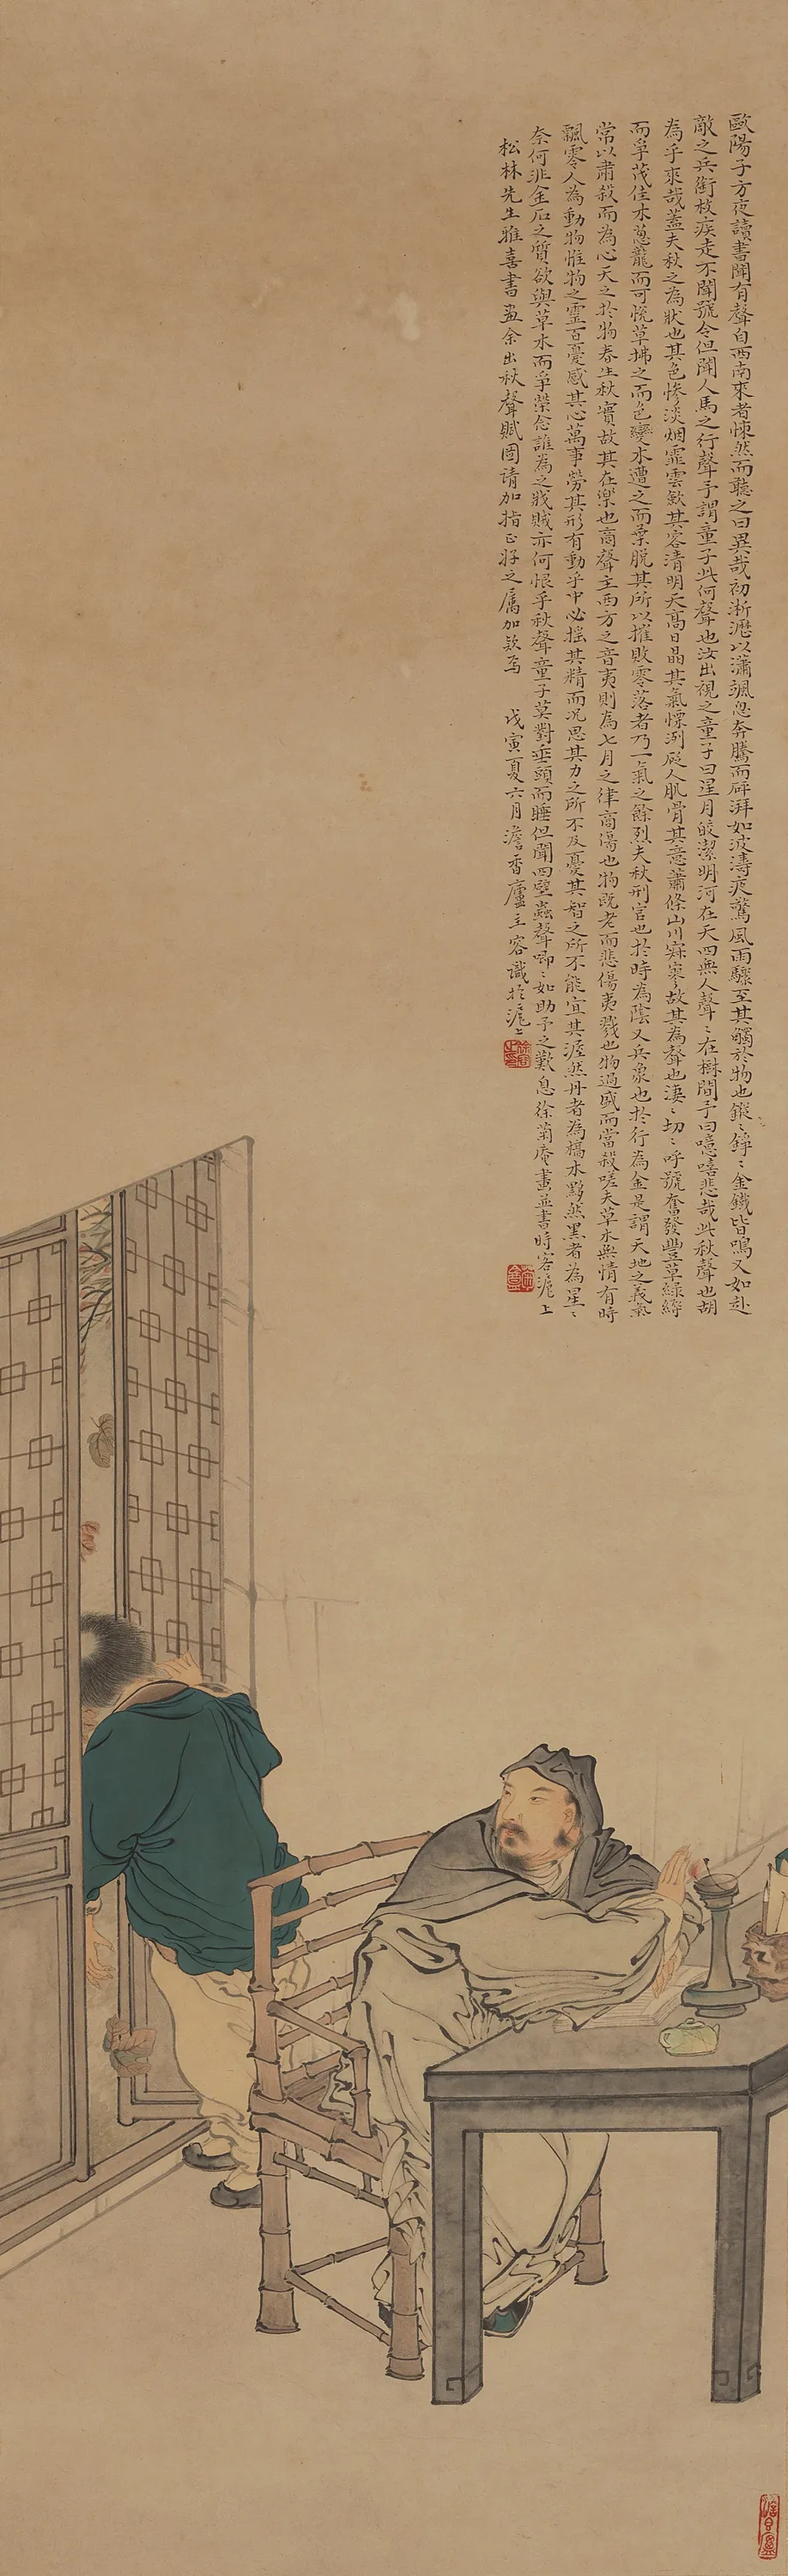 歐陽子方夜讀書聞有聲自西南來者悚然而聽之曰異哉初淅瀝以瀟颯忽奔騰而砰湃如波濤夜驚風雨驟至其觸於物也鏦〻錚〻金鐵皆鳴又如赴
敵之兵銜枚疾走不聞號令但聞人馬之行聲予謂童子此何聲也汝出視之童子曰星月皎潔明河在天四無人聲〻在樹間予曰噫嘻悲哉此秋聲也胡
為乎來哉蓋夫秋之為狀也其色慘淡烟霏雲斂其容清明天高日晶其氣慄洌砭人肌骨其意蕭條山川寂寥故其為聲也淒〻切〻呼號奮發豐草綠縟
而爭茂佳木蔥蘢而可悅草拂之而色變木遭之而葉脫其所以摧敗零落者乃一氣之餘烈夫秋刑官也於時為陰又兵象也於行為金是謂天地之義氣
常以肅殺而為心天之於物春生秋實故其在樂也商聲主西方之音夷則為七月之律商傷也物既老而悲傷夷戮也物過盛而當殺嗟夫草木無情有時
飄零人為動物惟物之靈百憂感其心萬事勞其形有動乎中必搖其精而況思其力之所不及憂其智之所不能宜其渥然丹者為槁木黟然黑者為星〻
奈何非金石之質欲與草木而爭榮念誰為之戕賊亦何恨乎秋聲童子莫對垂頭而睡但聞四壁蟲聲唧〻如助予之歎息徐菊庵畫並書時客滬上
松林先生雅喜書畫余出秋聲賦圖請加指正好之屬加款焉 戊寅夏六月澹香廬主容識於滬上